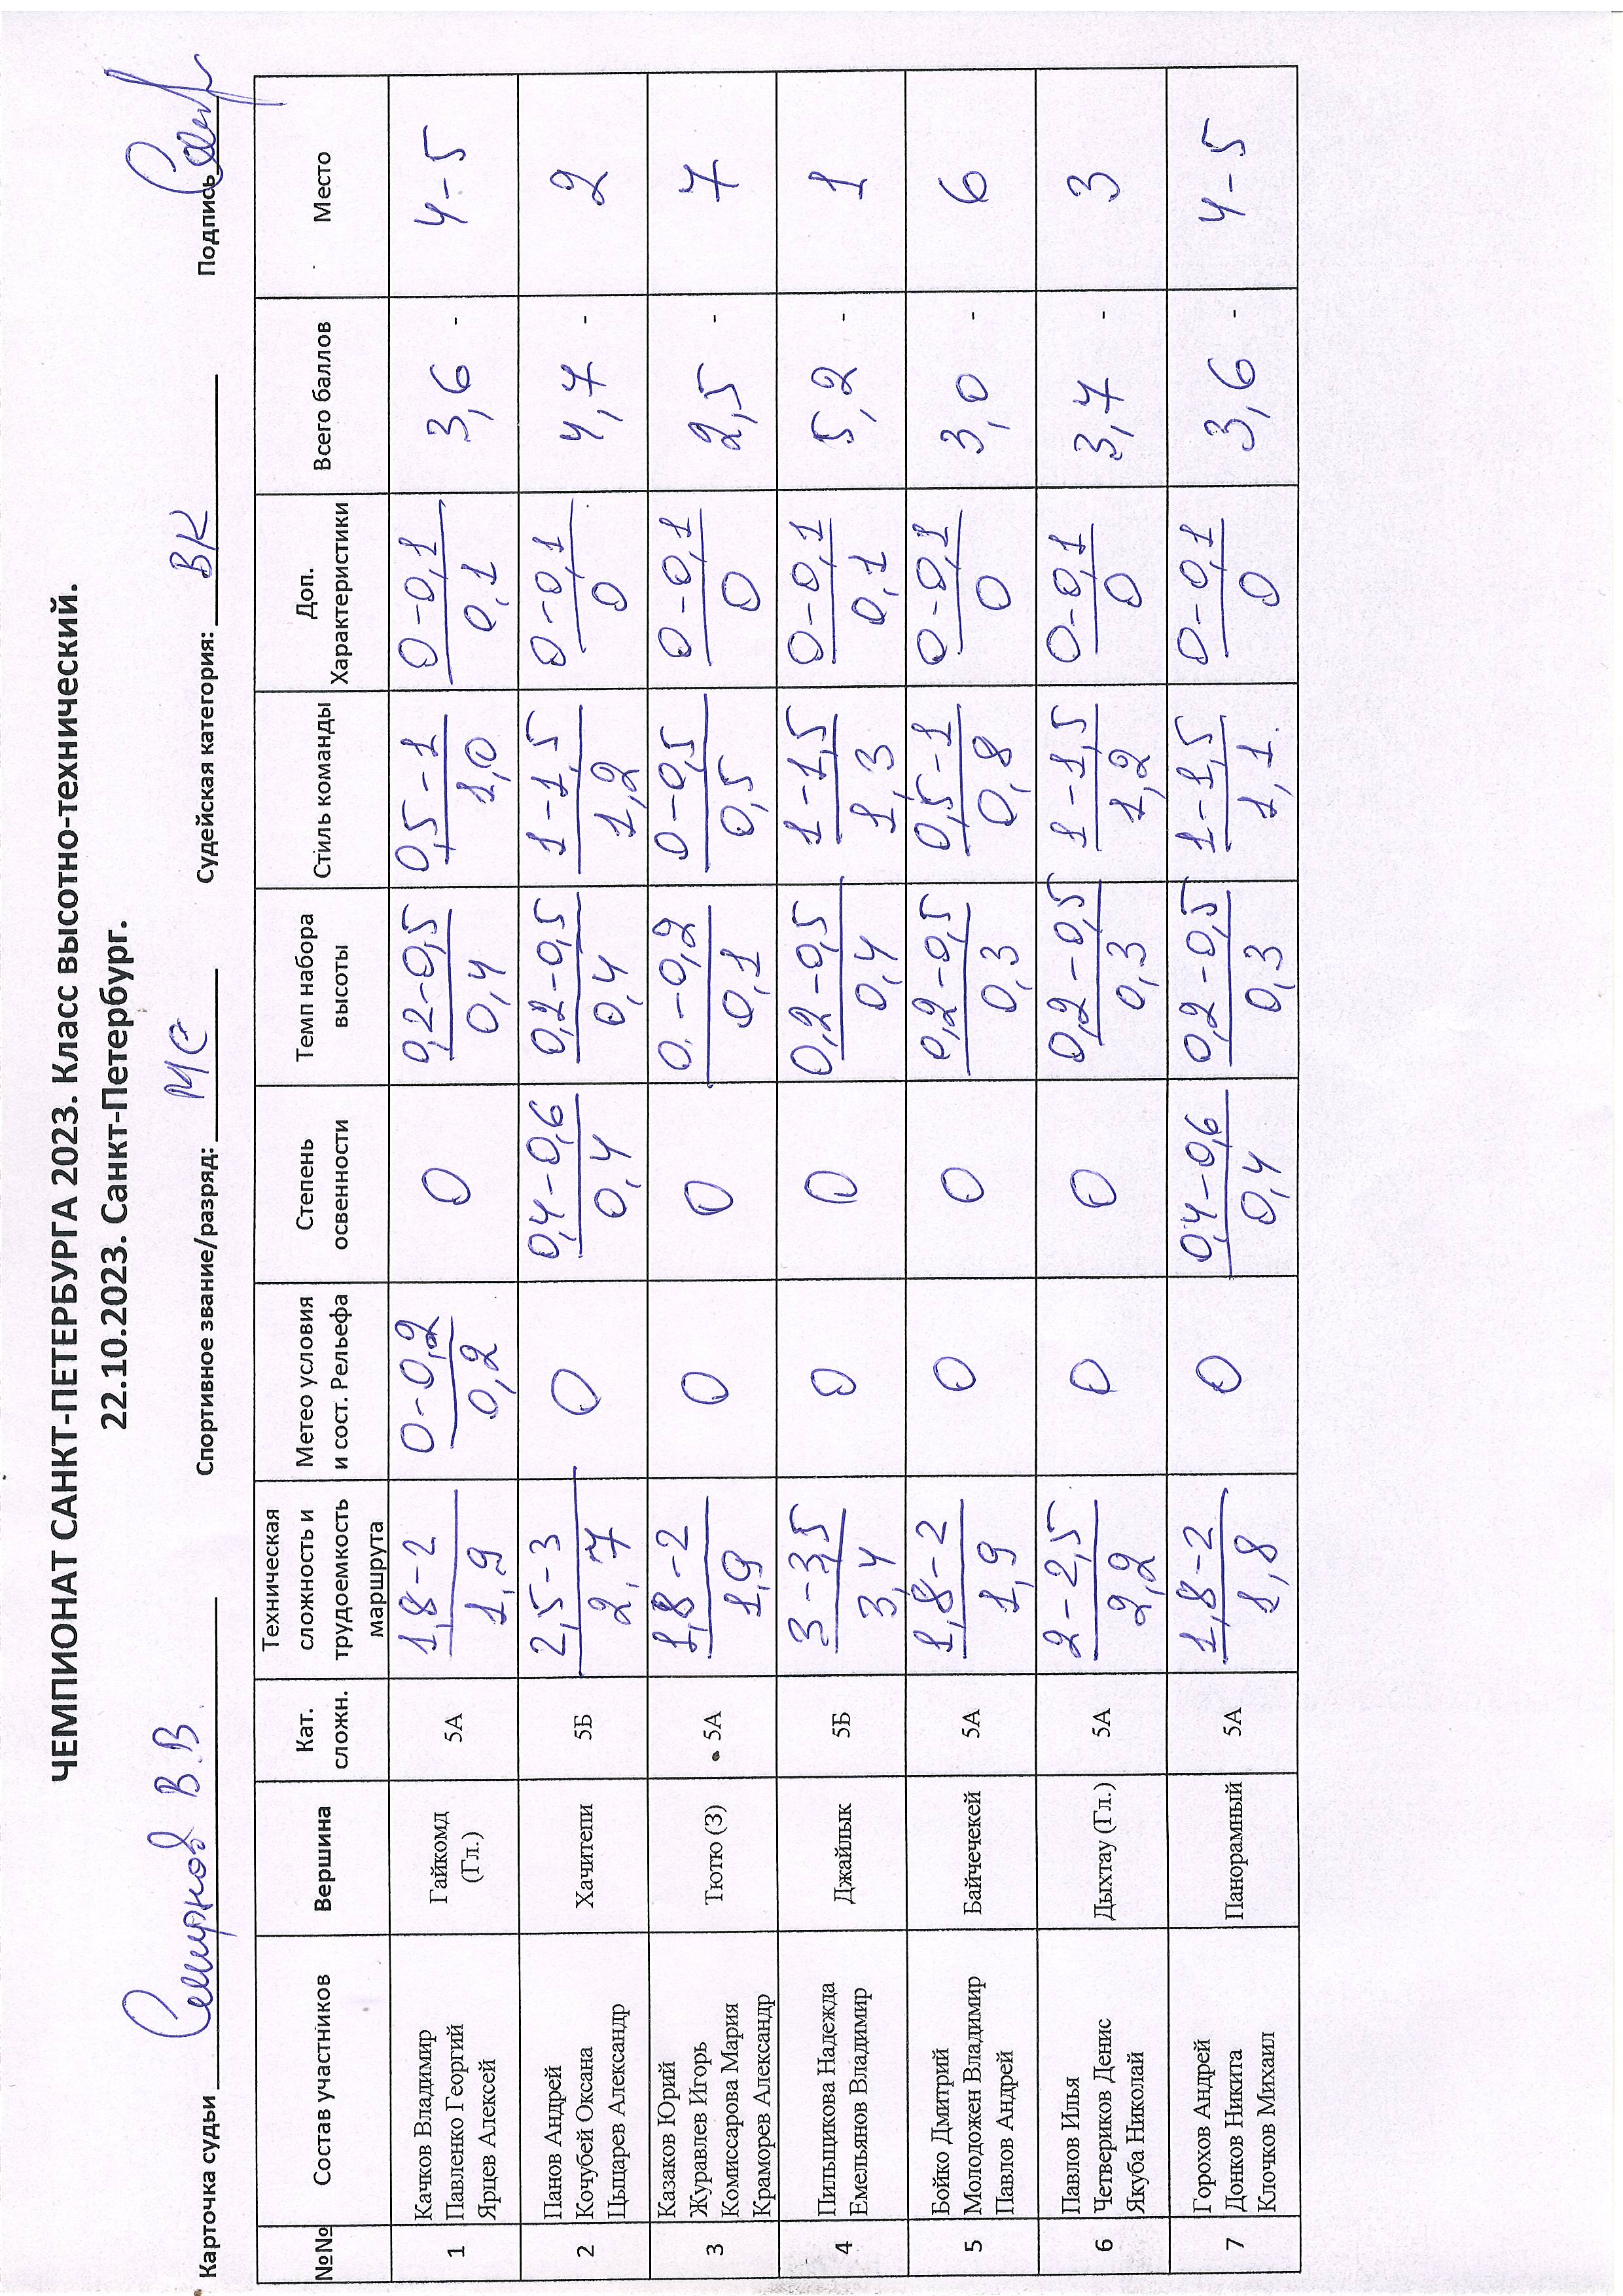 ЧЕМПИОНАТ САНКТ-ПЕТЕРБУРГА 2023. Класс высотно-технический.
22.10.2023. Санкт-Петербург.
Карточка судьи Смирнов В.В Спортивное звание/разряд: МС Судейская категория: ВК Подпись
№№ Состав участников Вершина Кат. сложн. Техническая сложность и трудоемкость маршрута Метео условия и сост. Рельефа Степень освенности Темп набора высоты Стиль команды Доп. Характеристики Всего баллов Место
1 Качков Владимир Гайкомд (Гл.) 5А 1,8-2 0-0,2 0 0,2-0,5 0,5-1 0-0,1 3,6 - 4-5
Павленко Георгий 1,9 0,2 0,4 1,0 0,1
Ярцев Алексей
2 Панов Андрей Хачитепи 5Б 2,5-3 0 0,4-0,6 0,2-0,5 1-1,5 0-0,1 4,7 - 2
Кочубей Оксана 2,7 0,4 0,4 1,2 0
Цыцарев Александр
3 Казаков Юрий Тютю (З) 5А 1,8-2 0 0 0-0,2 0-0,5 0-0,1 2,5 - 7
Журавлев Игорь 1,9 0,1 0,5 0
Комиссарова Мария
Краморев Александр
4 Пильщикова Надежда Джайлык 5Б 3-3,5 0 0 0,2-0,5 1-1,5 0-0,1 5,2 - 1
Емельянов Владимир 3,4 0,4 1,3 0,1
5 Бойко Дмитрий Байчечекей 5А 1,8-2 0 0 0,2-0,5 0,5-1 0-0,1 3,0 - 6
Молодожен Владимир 1,9 0,3 0,8 0
Павлов Андрей
6 Павлов Илья Дыхтау (Гл.) 5А 2-2,5 0 0 0,2-0,5 1-1,5 0-0,1 3,7 - 3
Четвериков Денис 2,2 0,3 1,2 0
Якуба Николай
7 Горохов Андрей Панорамный 5А 1,8-2 0 0,4-0,6 0,2-0,5 1-1,5 0-0,1 3,6 - 4-5
Донков Никита 1,8 0,4 0,3 1,1 0
Клочков Михаил